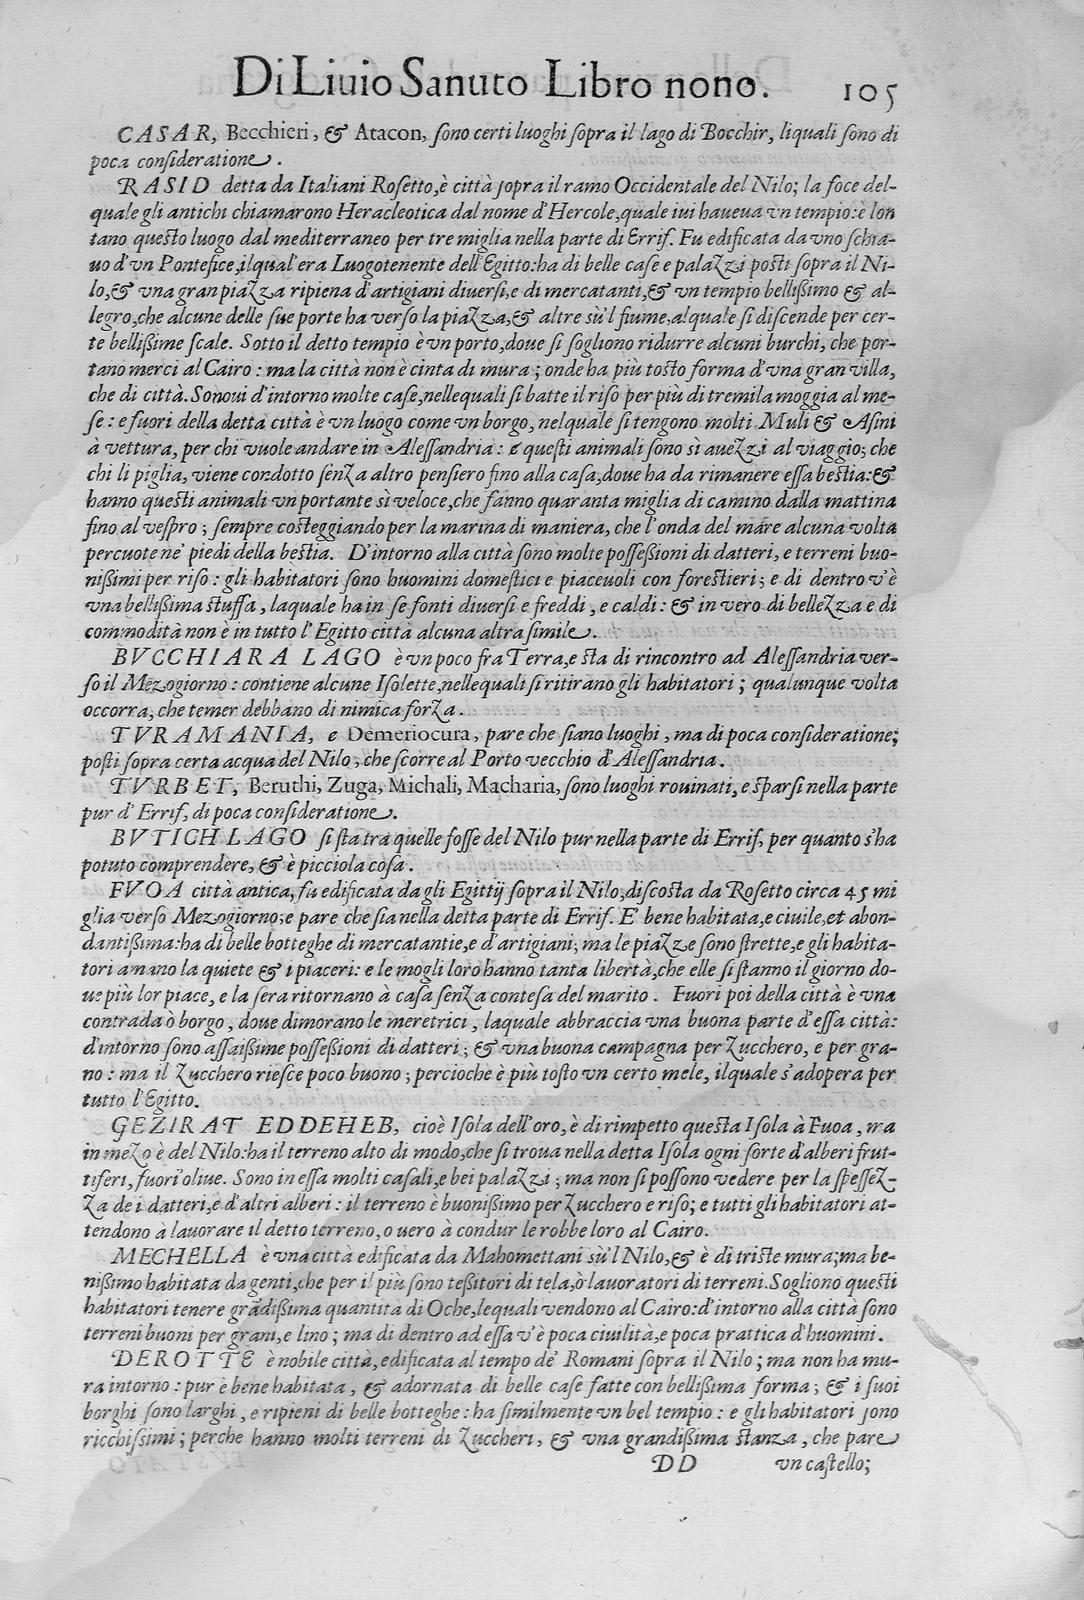 Di Liuio Sanuto Libro nono. 105
CASAR, Becchieri, & Atacon, sono certi luoghi sopra il lago di Bocchir, liquali sono di
poca consideratione.
RASID detta da Italiani Rosetto, è città sopra il ramo Occidentale del Nilo; la foce del-
quale gli antichi chiamarono Heracleotica dal nome d'Hercole, quale iui haueua vn tempio: è lon
tano questo luogo dal mediterraneo per tre miglia nella parte di Errif. Fu edificata da vno schia-
uo d'vn Pontefice, ilqual'era Luogotenente dell'Egitto: ha di belle case e palazzi posti sopra il Ni-
lo, & vna gran piazza ripiena d'artigiani diuersi, e di mercatanti, & vn tempio bellißimo & al-
legro, che alcune delle sue porte ha verso la piazza, & altre sù'l fiume, al quale si discende per cer-
te bellißime scale. Sotto il detto tempio è vn porto, doue si sogliono ridurre alcuni burchi, che por-
tano merci al Cairo: ma la città non è cinta di mura; onde ha più tosto forma d'vna gran villa,
che di città. Sonoui d'intorno molte case, nellequali si batte il riso per più di tremila moggia al me-
se: e fuori della detta città è vn luogo come vn borgo, nel quale si tengono molti Muli & Asini
à vettura, per chi vuole andare in Alessandria: e questi animali sono sì auezzi al viaggio; che
chi li piglia, viene condotto senza altro pensiero fino alla casa, doue ha da rimanere essa bestia: &
hanno questi animali vn portante sì veloce, che fanno quaranta miglia di camino dalla mattina
fino al vespro; sempre costeggiando per la marina di maniera, che l'onda del mare alcuna volta
percuote ne' piedi della bestia. D'intorno alla città sono molte poßeßioni di datteri, e terreni buo-
nißimi per riso: gli habitatori sono huomini domestici e piaceuoli con forestieri; e di dentro v'è
vna bellißima stuffa, laquale ha in se fonti diuersi e freddi, e caldi: & in vero di bellezza e di
commodità non è in tutto l'Egitto città alcuna altra simile.
BVCCHIARA LAGO è vn poco fra Terra, e sta di rincontro ad Alessandria ver-
so il Mezogiorno: contiene alcune Isolette, nellequali si ritirano gli habitatori; qualunque volta
occorra, che temer debbano di nimica forza.
TVRAMANIA, e Demeriocura, pare che siano luoghi, ma di poca consideratione;
posti sopra certa acqua del Nilo, che scorre al Porto vecchio d'Alessandria.
TVRBET, Beruthi, Zuga, Michali, Macharia, sono luoghi rouinati, e sparsi nella parte
pur d'Errif, di poca consideratione.
BVTICH LAGO si sta tra quelle fosse del Nilo pur nella parte di Errif, per quanto s'ha
potuto comprendere, & è picciola cosa.
FVOA città antica, fu edificata da gli Egittij sopra il Nilo, discosta da Rosetto circa 45 mi
glia verso Mezogiorno; e pare che sia nella detta parte di Errif. E' bene habitata, e ciuile, et abon-
dantißima: ha di belle botteghe di mercatantie, e d'artigiani; ma le piazze sono strette, e gli habita-
tori amano la quiete & i piaceri: e le mogli loro hanno tanta libertà, che elle si stanno il giorno do-
ue più lor piace, e la sera ritornano à casa senza contesa del marito. Fuori poi della città è vna
contrada ò borgo, doue dimorano le meretrici, laquale abbraccia vna buona parte d'essa città:
d'intorno sono assaißime poßeßioni di datteri; & vna buona campagna per zucchero, e per gra-
no: ma il zucchero riesce poco buono; percioche è più tosto vn certo mele, ilquale s'adopera per
tutto l'Egitto.
GEZIRAT EDDEHEB, cioè Isola dell'oro, è di rimpetto questa Isola à Fuoa, ma
in mezo è del Nilo: ha il terreno alto di modo, che si troua nella detta Isola ogni sorte d'alberi frut-
tiferi, fuori'oliue. Sono in essa molti casali, e bei palazzi; ma non si possono vedere per la spessez-
za de i datteri, e d'altri alberi: il terreno è buonißimo per zucchero e riso; e tutti gli habitatori at-
tendono à lauorare il detto terreno, o uero à condur le robbe loro al Cairo.
MECHELLA è vna città edificata da Mahomettani sù'l Nilo, & è di triste mura; ma be-
nißimo habitata da genti, che per il più sono teßitori di tela, ò lauoratori di terreni. Sogliono questi
habitatori tenere grãdißima quantità di Oche, lequali vendono al Cairo: d'intorno alla città sono
terreni buoni per grani, e lino; ma di dentro ad essa v'è poca ciuilità, e poca prattica d'huomini.
DEROTTE è nobile città, edificata al tempo de' Romani sopra il Nilo; ma non ha mu-
ra intorno: pur è bene habitata, & adornata di belle case fatte con bellißima forma; & i suoi
borghi sono larghi, e ripieni di belle botteghe: ha similmente vn bel tempio: e gli habitatori sono
ricchissimi; perche hanno molti terreni di zuccheri, & vna grandißima stanza, che pare
DD vn castello;